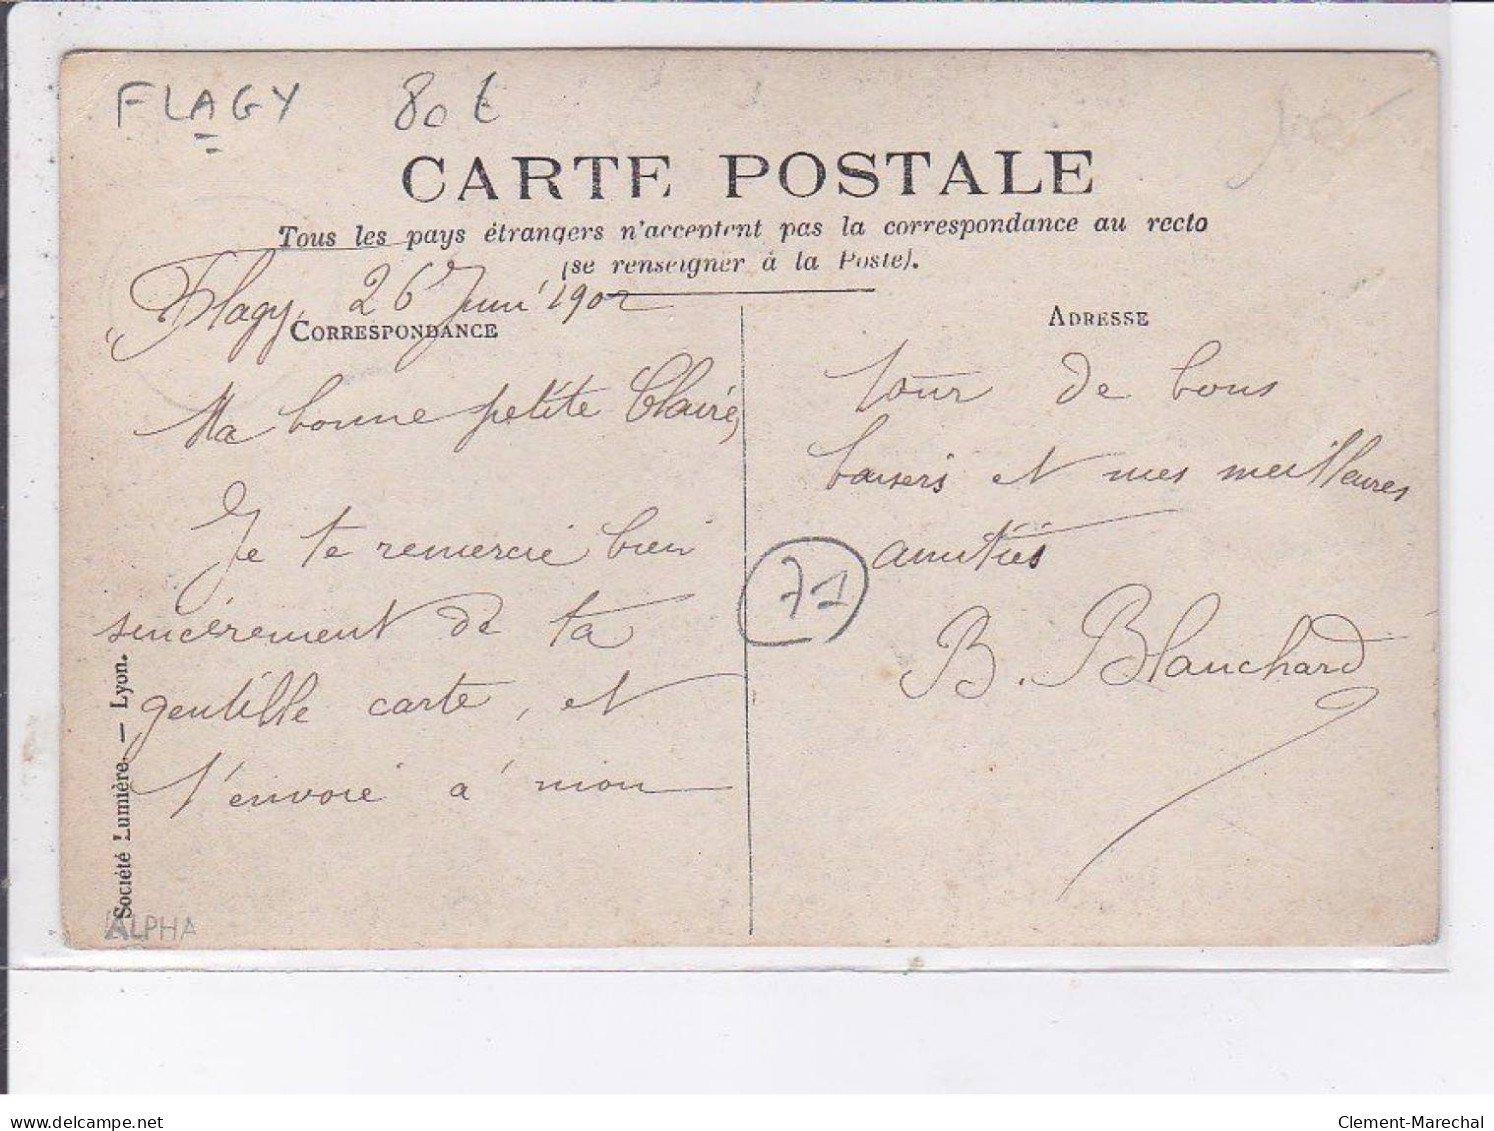 FLAGY 80 €
CARTE POSTALE
Tous les pays étrangers n'acceptent pas la correspondance au recto
(se renseigner à la Poste).
Flagy, 26 Juin 1902
CORRESPONDANCE
Ma bonne petite Claire,
Je te remercie bien
sincèrement de ta
gentille carte, et
t'envoie à mon
ADRESSE
tour de bons
baisers et mes meilleures
amitiés
B. Blanchard
71
Société Lumière. — Lyon.
ALPHA
www.delcampe.net
Clement-Marechal